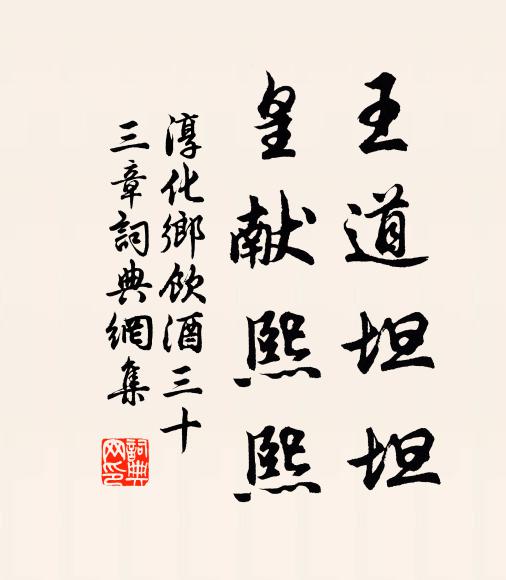 王道坦坦
皇献熙熙
淳化鄉飲酒三十
三章詞典網集
詞典
网印